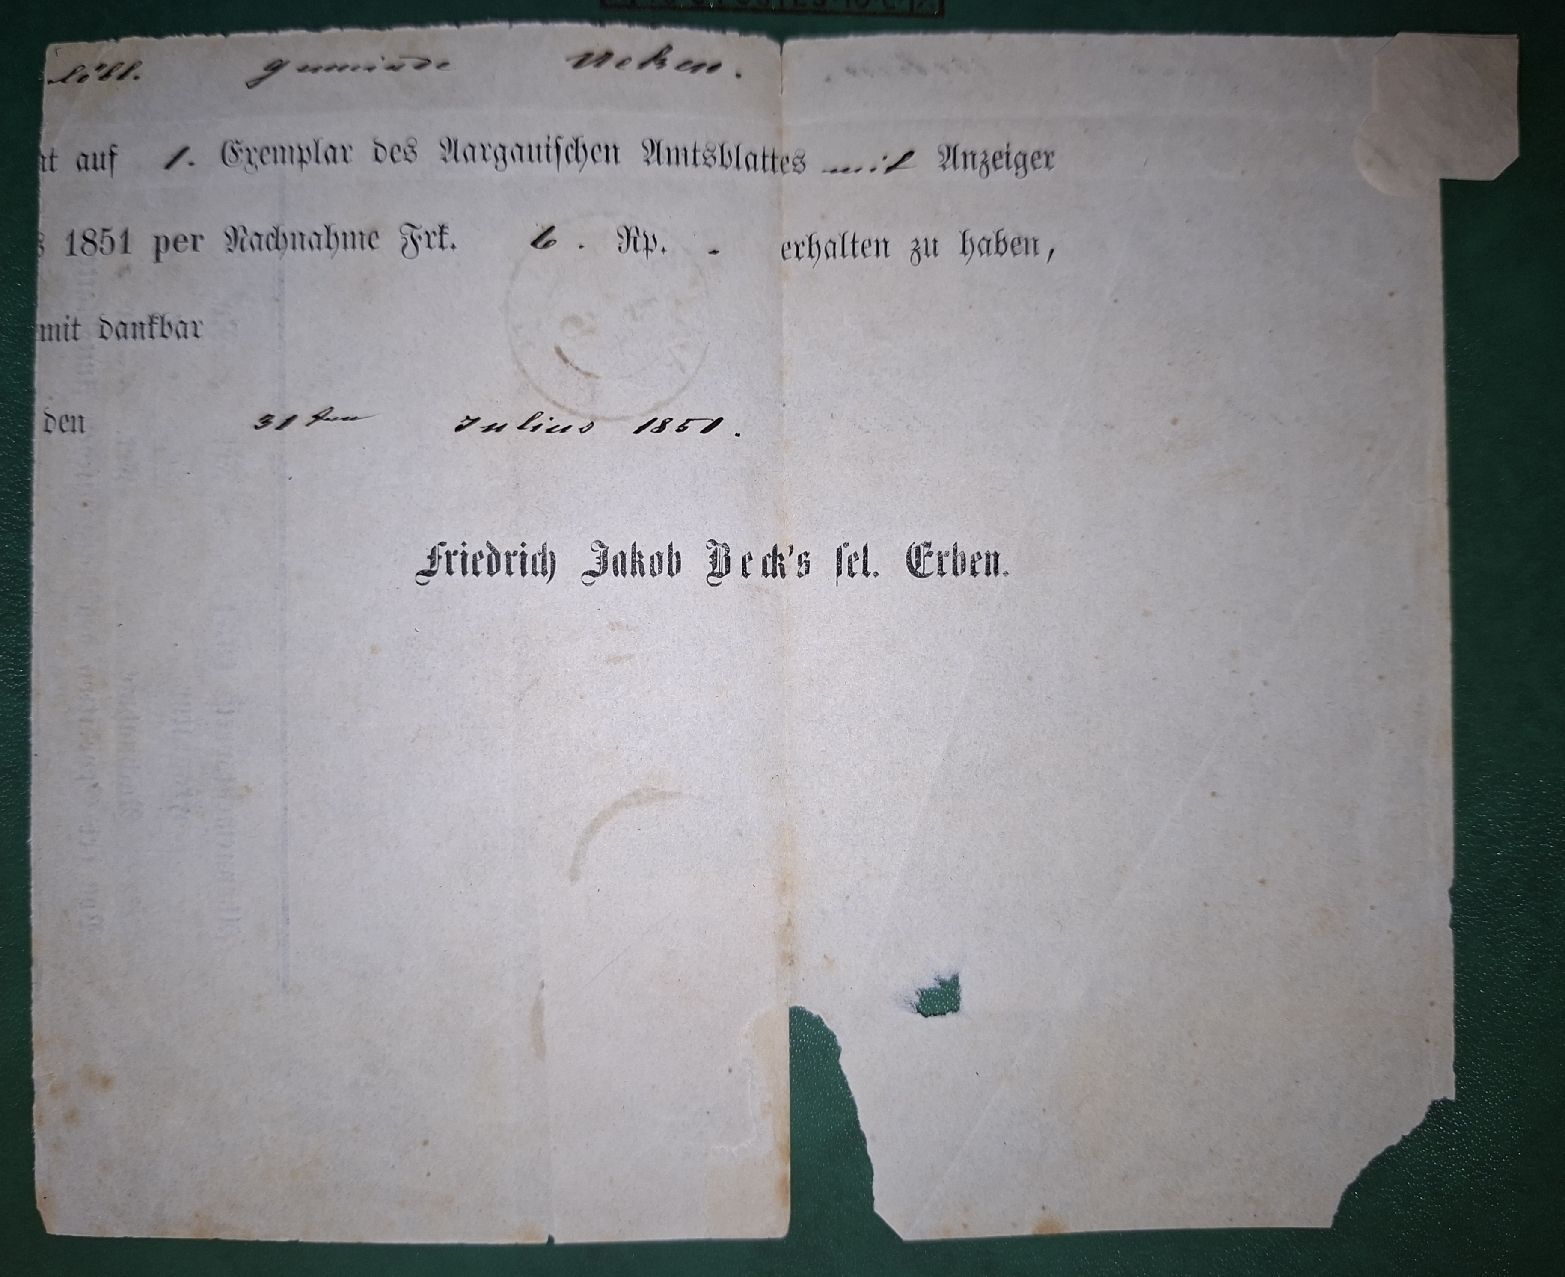 löbl. Gemeinde Ueken.
at auf 1. Exemplar des Aargauischen Amtsblattes mit Anzeiger
s 1851 per Nachnahme Frk. 6. Rp. - erhalten zu haben,
mit dankbar
den 31ten Julius 1851.
Friedrich Jakob Beck's sel. Erben.